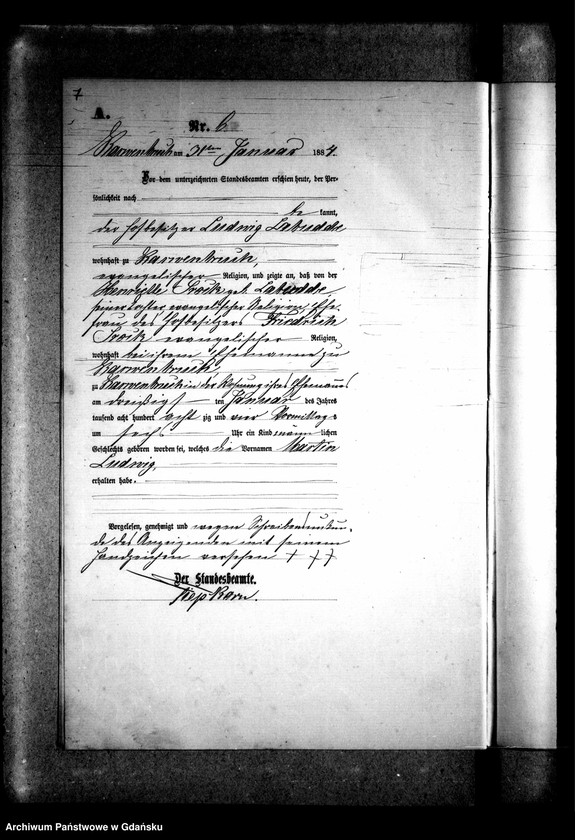 7
A.
Nr. 6
Karwenbruch am 31ten Januar 1884.
Vor dem unterzeichneten Standesbeamten erschien heute, der Per-
sönlichkeit nach
be kannt,
der Hofbesitzer Ludwig Labudde
wohnhaft zu Karwenbruch,
evangelischer Religion, und zeigte an, daß von der
Henriette geb. Labudde
seiner Tochter evangelischer Religion, Ehe
frau des Hofbesitzers Friedrich
evangelischer Religion,
wohnhaft bei ihrem Ehemanne zu
Karwenbruch,
zu Karwenbruch in der Wohnung ihres Ehemannes
am dreißigsten Januar des Jahres
tausend acht hundert achtzig und vier Vormittags
um sechs Uhr ein Kind männlichen
Geschlechts geboren worden sei, welches die Vornamen Martin
Ludwig,
erhalten habe.
Vorgelesen, genehmigt und wegen Schreibensunkun-
de des Anzeigenden mit seinem
Handzeichen versehen + + +
Der Standesbeamte.
Archiwum Państwowe w Gdańsku